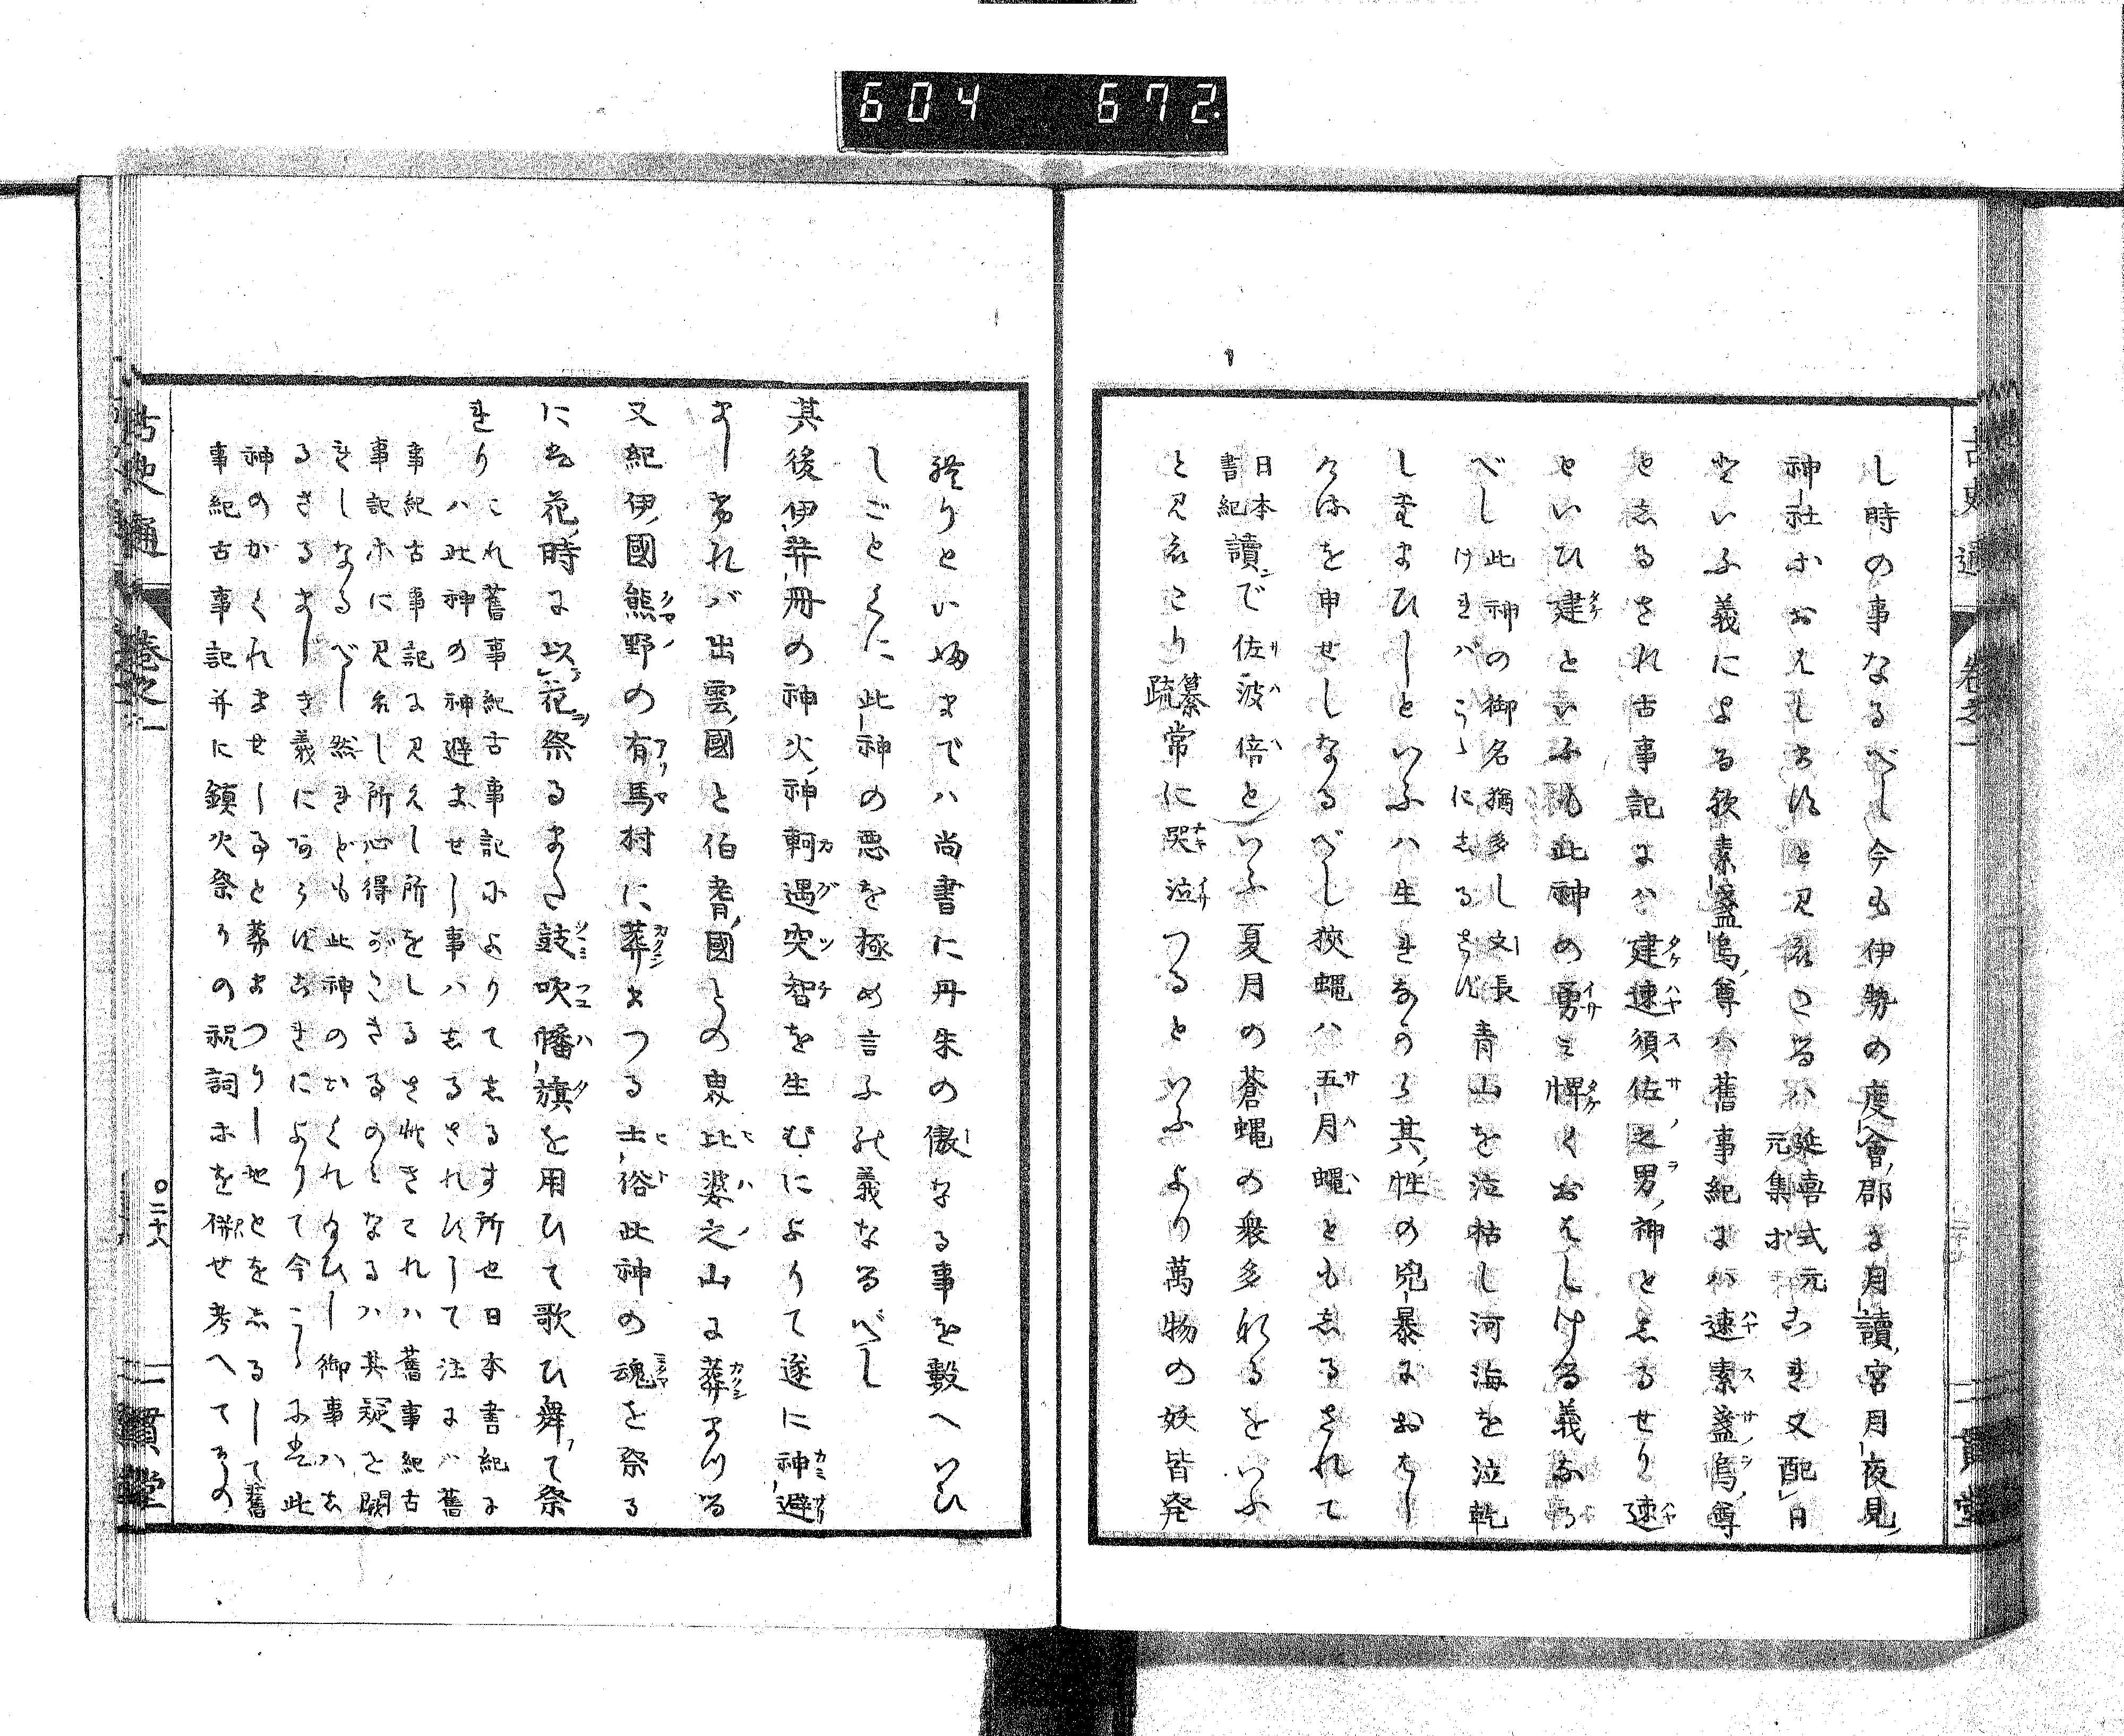 604 672
し時の事なるべし今も伊勢の度會郡に月讀宮月夜見
神社おはしますと見えたるハ延喜式元元集ホ又配日
といふ義による歟素盞嗚尊ハ舊事紀にハ速素盞嗚尊
としるされ古事記にハ建速須佐之男神としるせり速
といひ建といふ此神の勇ミ悍くおはしける義なる
べし此神の御名猶多し文長けれバこゝにしるさず青山を泣枯し河海を泣乾
したまひしといふハ生れながら其性の兇暴におはし
けるを申せしなるべし狹蠅ハ五月蠅ともしるされて
日本書紀讀で佐波倍といふ夏月の蒼蠅の衆多なるをいふ
と見えたり纂疏常に哭泣つるといふより萬物の妖皆発
古史通
卷之一
終りといふまでハ尚書に丹朱の傲なる事を數へいひ
しごとくに此神の悪を極め言ふの義なるべし
其後伊弉冊の神火神軻遇突智を生むによりて遂に神避
ましければ出雲國と伯耆國との界比婆之山に葬まつる
又紀伊國熊野の有馬村に葬まつる土俗此神の魂を祭る
には花時に以花祭るまた鼓吹幡旗を用ひて歌ひ舞て祭
れりこれ舊事紀古事記によりてしるす所也日本書紀に
ハ此神の神避ませし事ハしるされずして注にハ舊
事紀古事記に見えし所をしるされきこれハ舊事紀古
事記ホに見えし所心得がたきものとなるハ其疑を闕
れしなるべし然れども此神のかくれ給ひし御事ハし
るさるまじき義にあらずしきによりて今こゝに此
神のかくれませしると葬まつりし地とをしるして舊
事紀古事記并に鎮火祭りの祝詞ホを併せ考へてその
古史通
卷之一
〇二十八
一貫堂